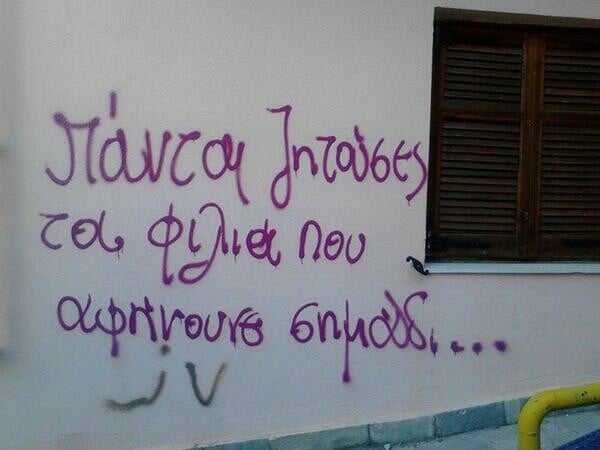 Πάντα ζητούσες
τα φιλια που
αφήνουνε σημάδι....